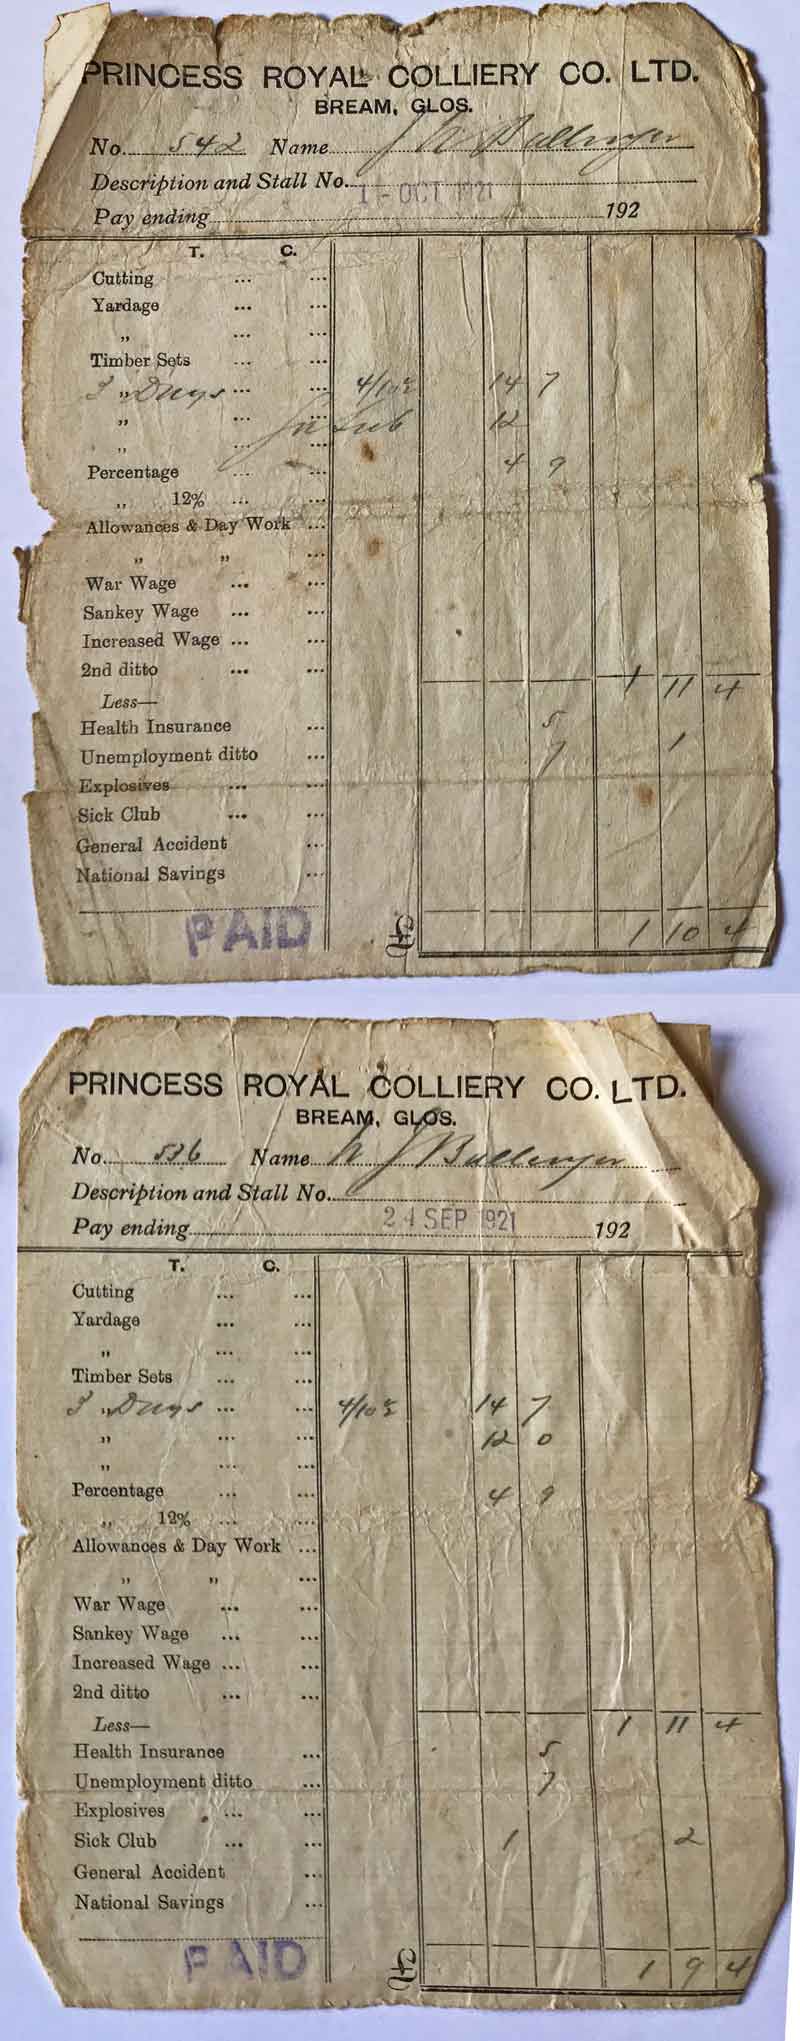 PRINCESS ROYAL COLLIERY CO. LTD.
BREAM, GLOS.
No. 542 Name J W Bullinger
Description and Stall No.
1 - OCT 1921
Pay ending 192
T. C.
Cutting ... ...
Yardage ... ...
„ ... ...
Timber Sets ... ...
3 „ Days ... ... 4/10½ 14 7
„ ... ... Sub 12
„ ... ...
Percentage ... ... 4 9
„ 12% ... ...
Allowances & Day Work ...
„ „ ...
War Wage ... ...
Sankey Wage ... ...
Increased Wage ... ...
2nd ditto ... ...
1 11 4
Less—
Health Insurance ... 5
Unemployment ditto ... 7 1
Explosives ... ...
Sick Club ... ...
General Accident ...
National Savings ...
PAID £ 1 10 4
PRINCESS ROYAL COLLIERY CO. LTD.
BREAM, GLOS.
No. 536 Name W J Bullinger
Description and Stall No.
24 SEP 1921
Pay ending 192
T. C.
Cutting ... ...
Yardage ... ...
„ ... ...
Timber Sets ... ...
3 „ Days ... ... 4/10½ 14 7
„ ... ... 12 0
„ ... ...
Percentage ... ... 4 9
„ 12% ... ...
Allowances & Day Work ...
„ „ ...
War Wage ... ...
Sankey Wage ... ...
Increased Wage ... ...
2nd ditto ... ...
Less— 1 11 4
Health Insurance ... 5
Unemployment ditto ... 7
Explosives ... ...
Sick Club ... ... 1 2
General Accident ...
National Savings ...
PAID £ 1 9 4